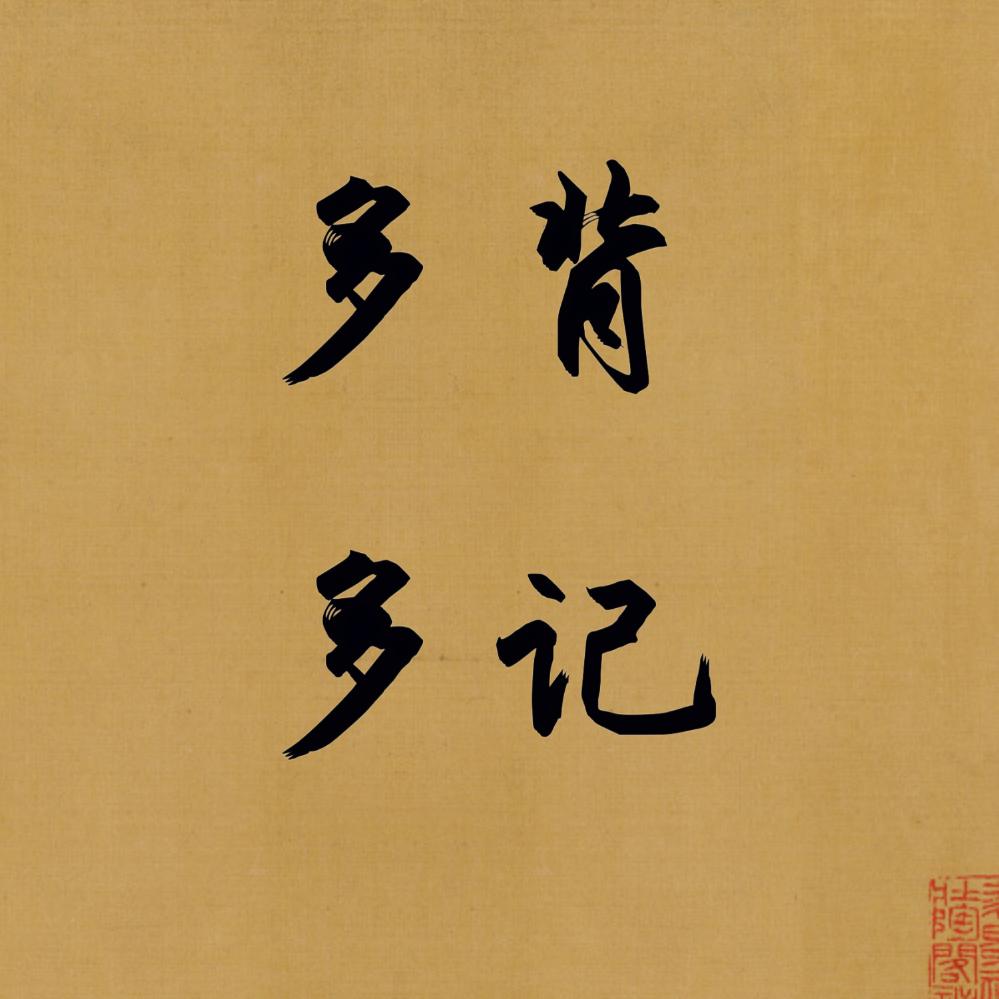 多背
多记